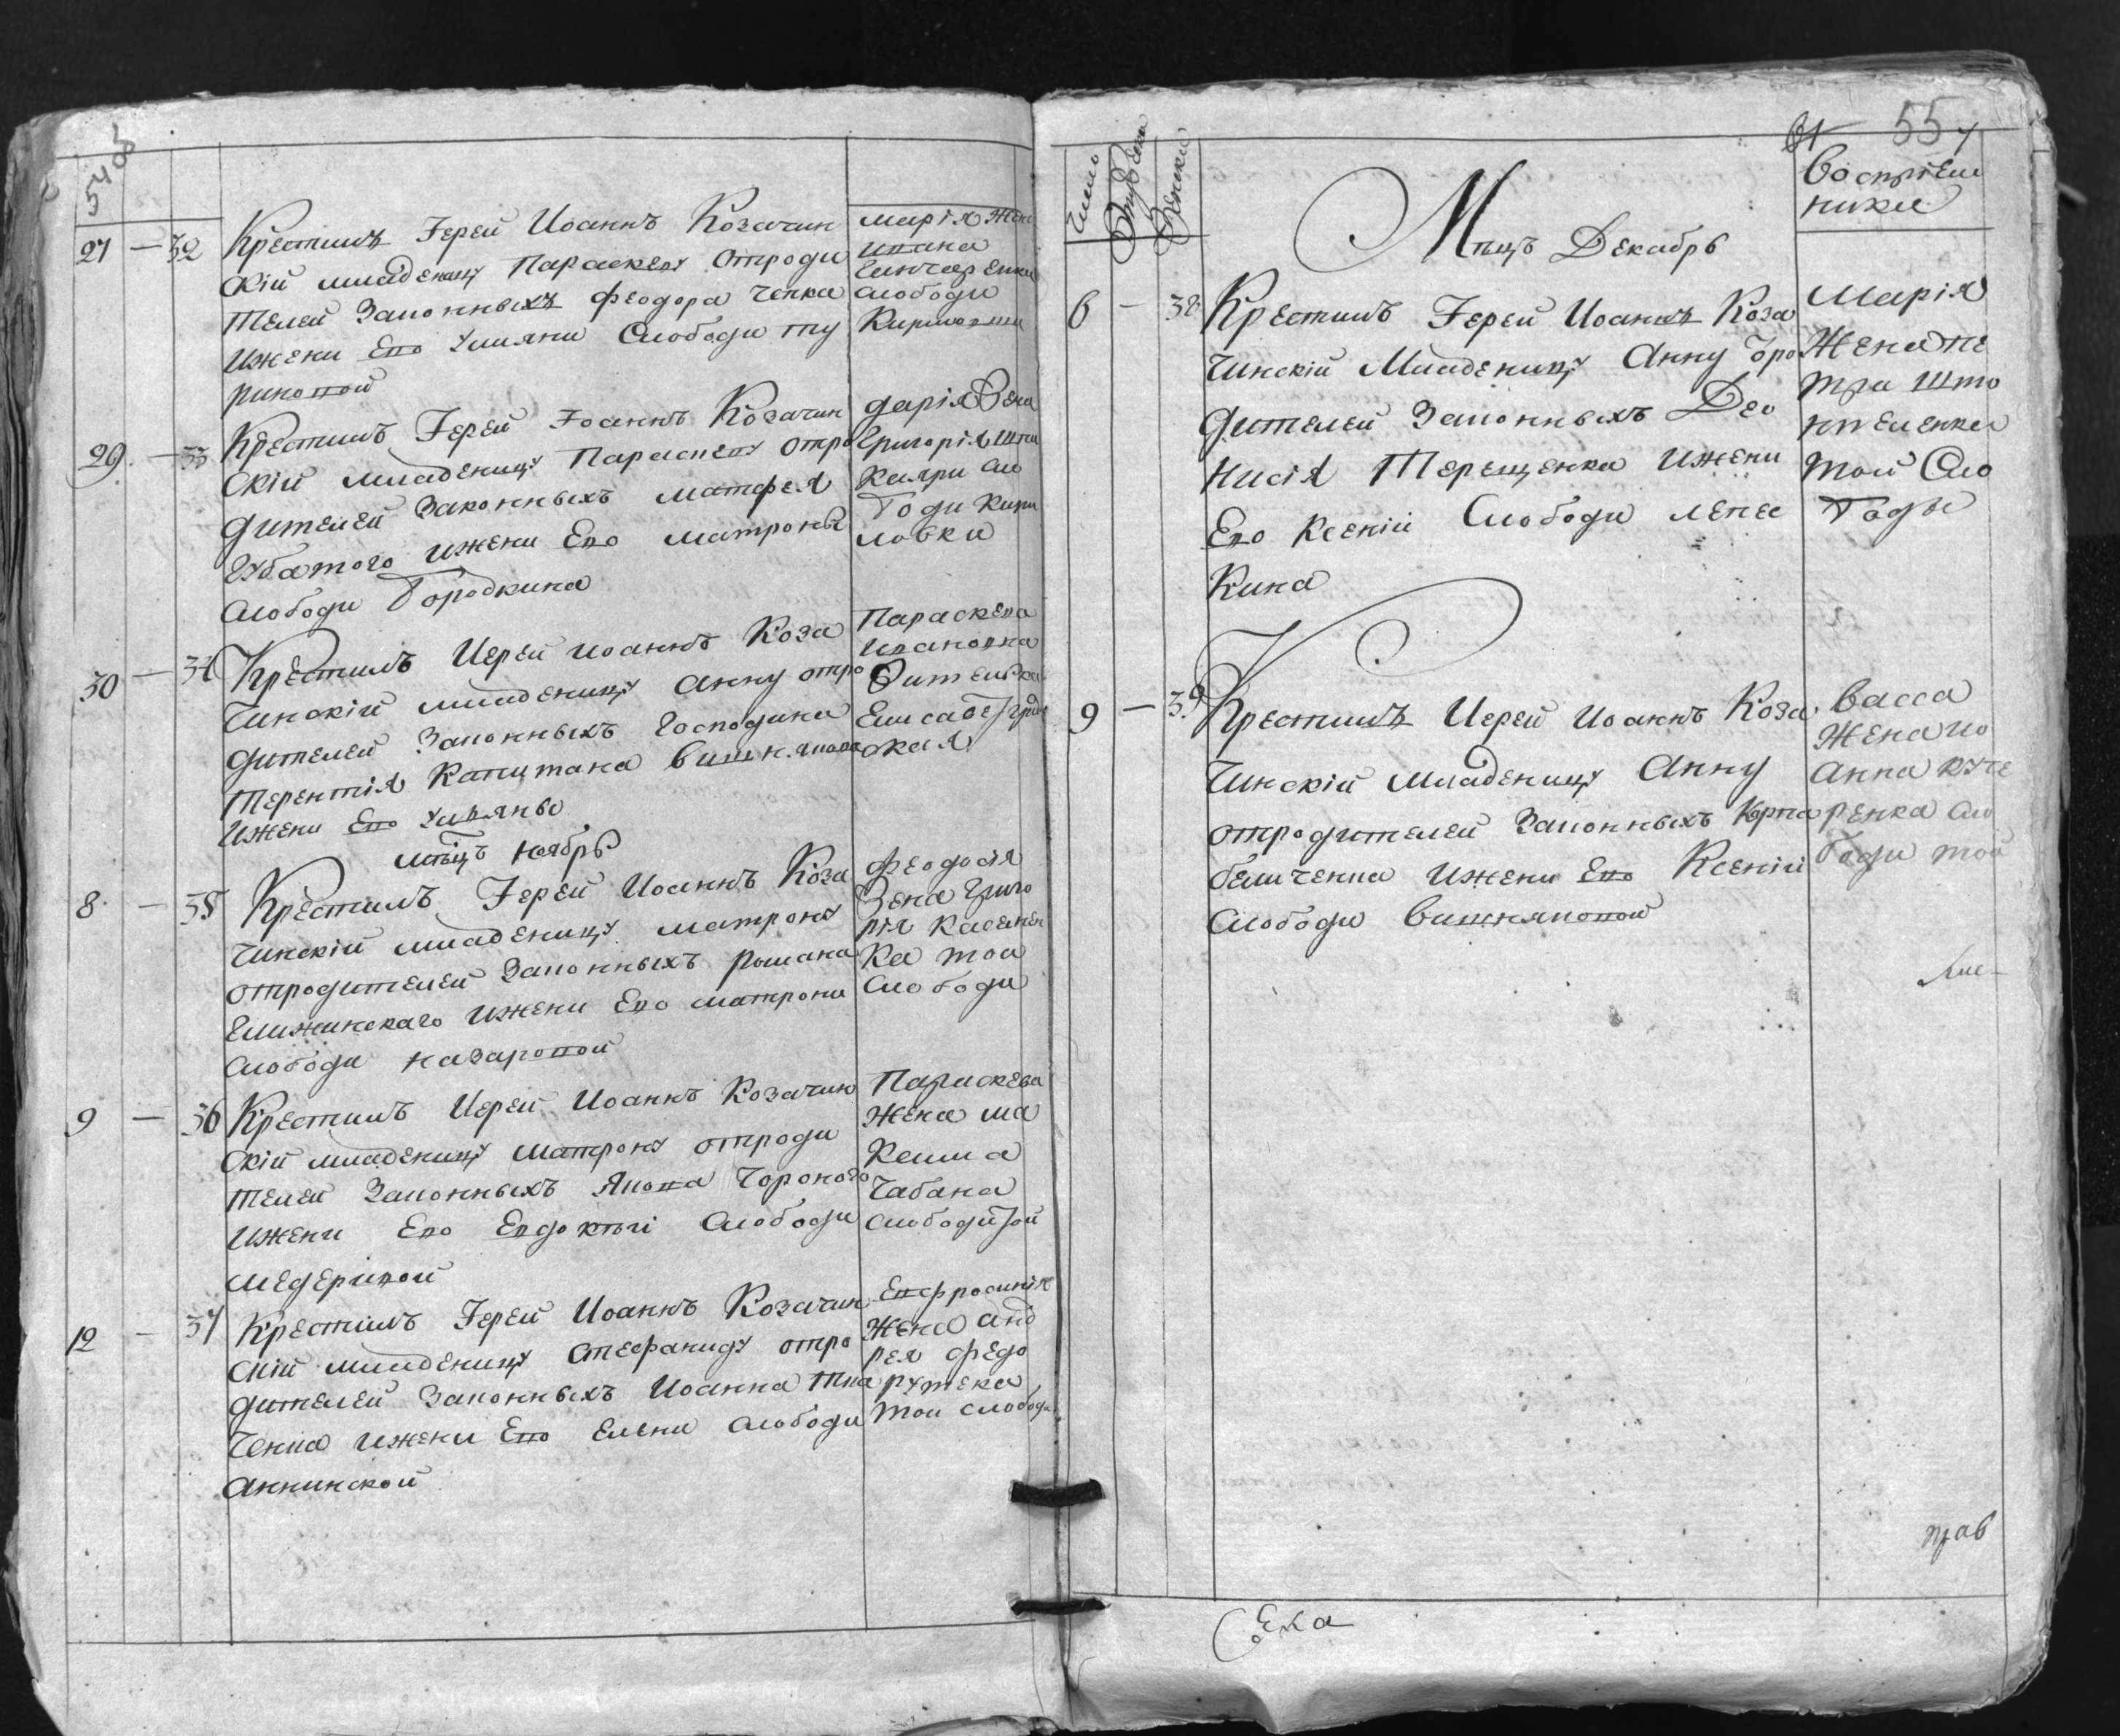 27 — 32 Крестилъ Іерей Иоаннъ Козачин
скій младеницу Параскеву отроди
телей Законныхъ Феодора
ижени Его Улияни Слободи Ту
риковой
Марія жена
Ивана
слободи
29 — 33 Крестилъ Іерей Іоаннъ Козачин
скій младеницу Параскеву отро
дителей Законныхъ Матфея
Губатого ижени Его Матроны
слободи Городкина
дарія Зена
Григорія Шти
каяри сло
боди Кири
ловки
30 — 34 Крестилъ Иерей Иоаннъ Коза
чинскій младеницу Анну отро
дителей Законныхъ Господина
Терентія Капитана
ижени Его Улияны
Параскева
Ивановна
мѣцъ Ноябрь
8 — 35 Крестилъ Іерей Иоаннъ Коза
чинскій младеницу матрону
отродителей Законныхъ Романа
ижени Его матрони
слободи назаровой
Феодосія
Зена Григо
рія
ка тоя
слободи
9 — 36 Крестилъ Иерей Иоаннъ Козачин
скій младеницу матрону отроди
телей Законныхъ Якова Чорного
ижени Его Евдокѣи слободи
медеривой
Параскева
Жена ма
ксима
Чабана
слободи той
12 — 37 Крестилъ Іерей Иоаннъ Козачин
скій младеницу стефаниду отро
дителей Законныхъ Иоанна Тка
ченка ижени Его Елени слободи
аннинской
Евфросинія
Жена анд
рея Федо
рутека
тои слободи
55
Число
Женска
Воспріем
ники
Мѣцъ Декабрь
6 — 38 Крестилъ Іерей Иоаннъ Коза
чинскій Младеницу Анну
дителей Законныхъ Део
нисія Терещенка ижени
Его Ксеніи Слободи
кина
Марія
Жена пе
тра Што
той Сло
боды
9 — 39 Крестилъ Иерей Иоаннъ Коза
чинскій младеницу Анну
отродителей Законныхъ Карпа
беличенка ижени Его Ксеніи
слободи Вишняковой
Васса
Жена ио
анна куче
ренка сло
боди той